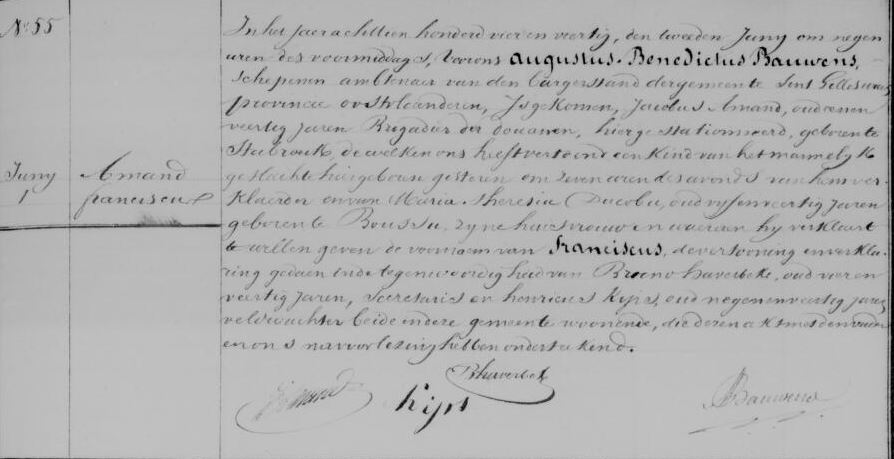 N.o 55
Juny
1
Amand
franciscus
In het jaer achttien honderd vier en veertig, den tweeden Juny om negen
uren des voormiddags, Voor ons Augustus Benedictus Bauwens,
schepenen ambtenaer van den burgerstand der gemeente Sint Gilles waes
provincie oostvleanderen, Is gekomen, Jacobus Amand, oud eenen
veertig jaren Brigadier der douanen, hier gestationneerd, geboren te
Stabrouk, de welken ons heeft vertoond een Kind van het mannelyk
geslachte hier geboren gisteren om zeven uren des avonds van hem ver-
klaerder en van Maria Theresia Ducobu, oud vyfenveertig jaren
geboren te Boussu, zyne huisvrouw en waeraen hy verklaert
te willen geven de voornaem van Franciscus, de vertooning en verkla-
ring gedaen in de tegenwoordigheid van Bruno haverbeke, oud vier en
veertig jaren, Secretaris en henricus Kips, oud negenenveertig jaren
veldwachter beide in deze gemeente woonende, die deren akt met den vader
en ons na voorlezing hebben onderteekend.
Amand
Kips
B haverbeke
Bauwens